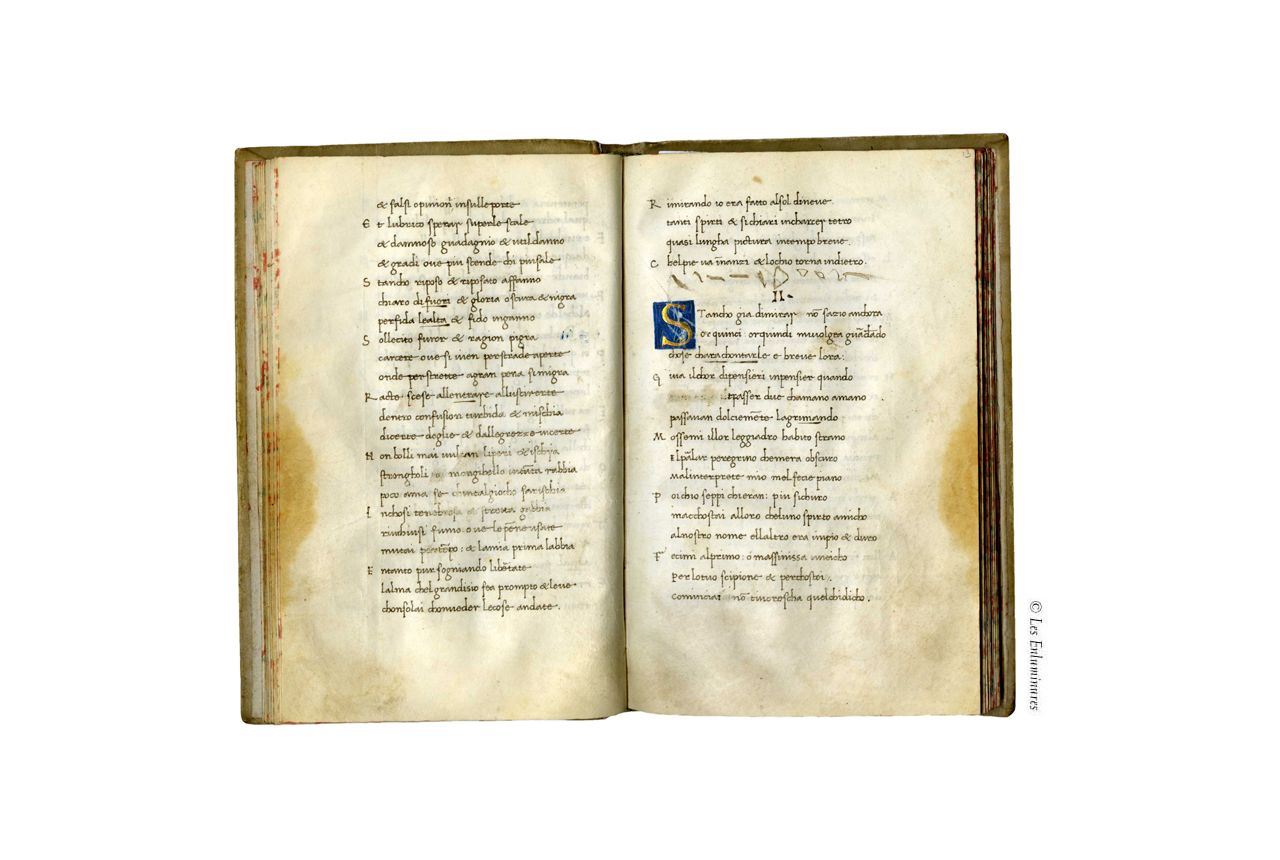 & falsi opinion̄ insulleporte
E t lubrico sperar superle scale
& damnoso guadagnio & util danno
& gradi ove piu scende chi piu sale
S tancho riposo & riposato affanno
chiaro disuori & gloria oscura & nigra
perfida lealta & fido inganno
S ollecito furor & ragion pigra
carcere ove si vien per strade aperte
onde per strette a gran pena si migra
R atte scese allentrare allusir erte
dentro confusion turbida & mischia
di certe doglie & dallegrezze incerte
N on bolli mai vulcan lipari & ischia
strongholi o mongibello in tāta rabbia
poco ama se chintalgiocho sarischia
I nchosi tenebrosa & stretta gabbia
rinchiusi fumo ove le pēne usate
mutai per tēpo & la mia prima labbia
E ntanto pur sogniando libertate
lalma chel gran disio fea prompto & leve
chonsolai chon veder le cose andate.
13
R imirando io era fatto alsol dineve
tanti spirti & sichiari incharcer tetro
quasi lungha pictura intempo breve.
C helpie va īnanzi & lochio torna indietro.
II.
S Tancho gia dimirar nō sazio anchora
or quinci or quindi mivolgea guardādo
chose charachontarle e breve lora:
G iva ilchor dipensieri inpensier quando
trasser due chamano amano
passavan dolcemēte lagrimando
M ossemi illor leggiadro habito strano
Elpālar peregrino chemera obscuro
Malinterprete mio melfecie piano
P oichio seppi chieran: piu sichuro
macchostai alloro cheluno spirto amicho
alnostro nome ellaltro era inpio & duro
F ecimi alprimo: o massinissa anticho
Per lotuo scipione & per chostei.
cominciai nō tincrescha quelchidicho.
© Les Enluminures